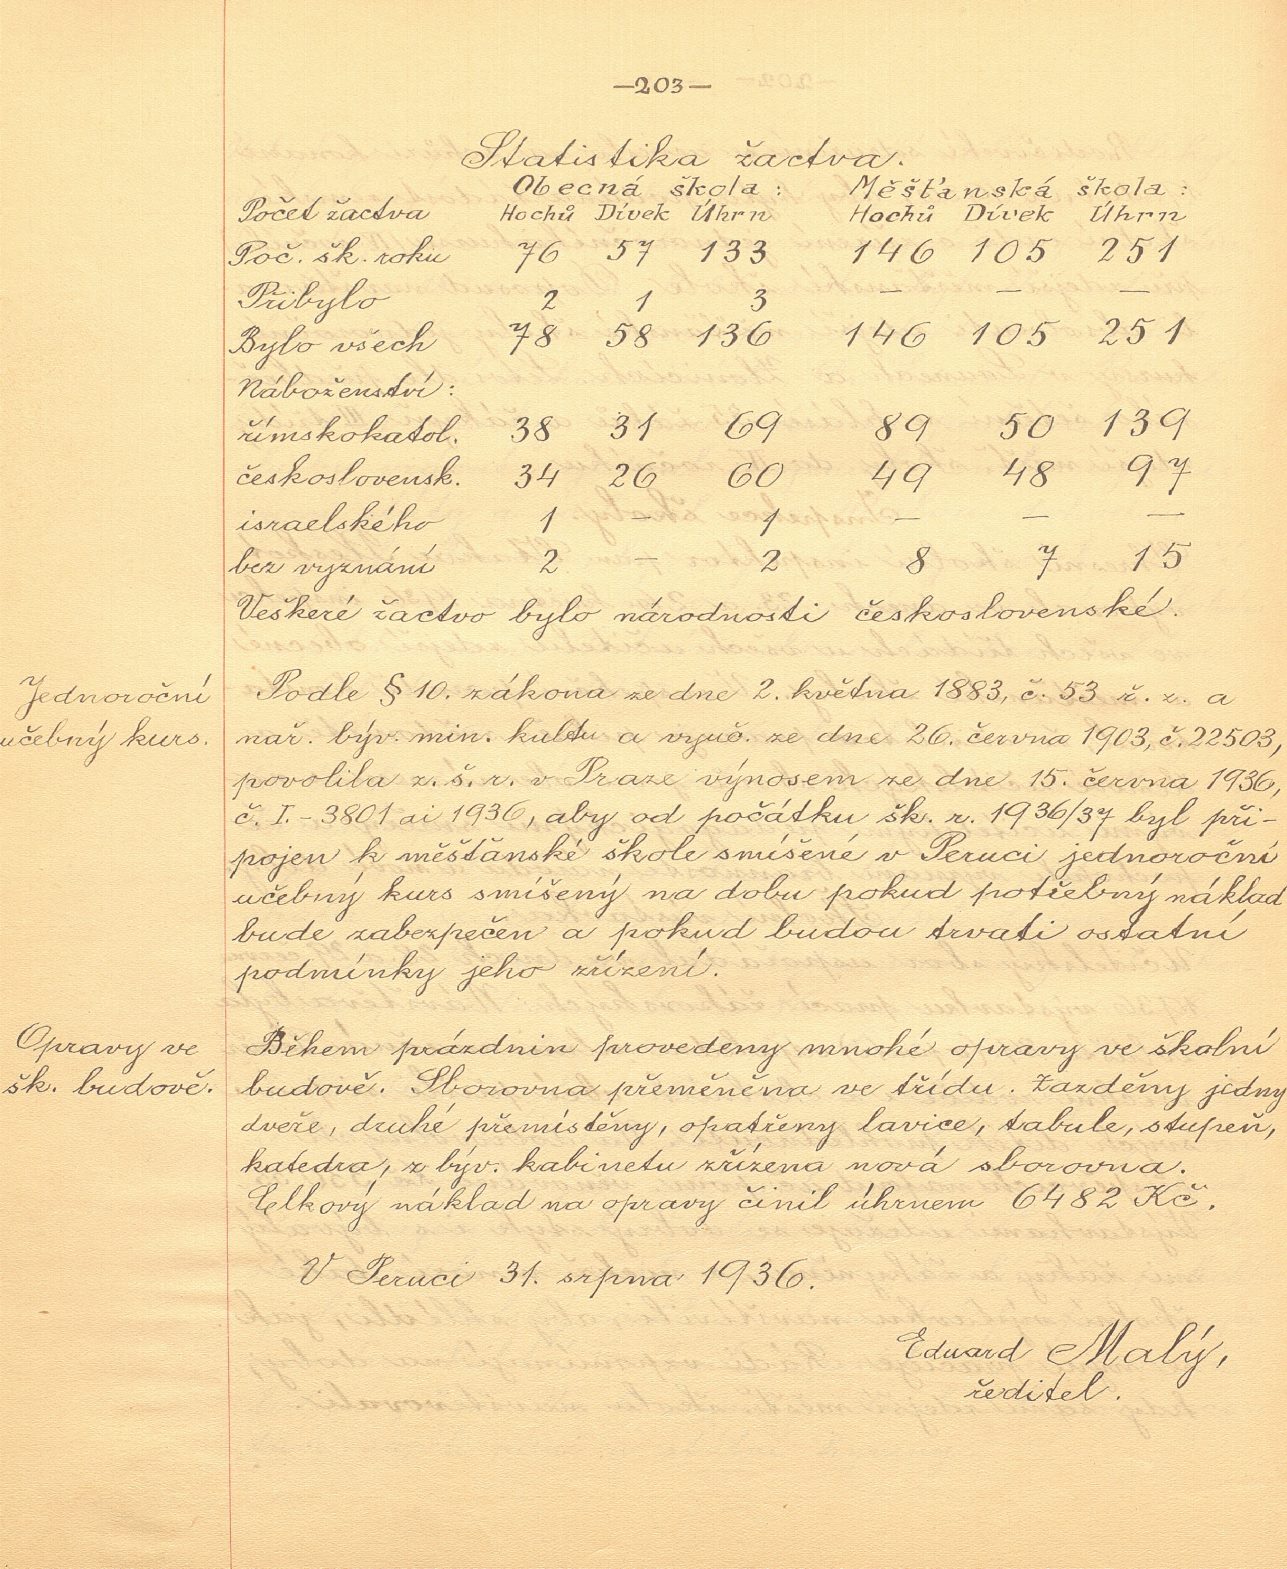 —203—
Statistika žactva.
Obecná škola: Měšťanská škola:
Počet žactva Hochů Dívek Úhrn Hochů Dívek Úhrn
Poč. šk. roku 76 57 133 146 105 251
Přibylo 2 1 3 — — —
Bylo všech 78 58 136 146 105 251
Náboženství:
římskokatol. 38 31 69 89 50 139
československ. 34 26 60 49 48 97
israelského 1 — 1 — — —
bez vyznání 2 — 2 8 7 15
Veškeré žactvo bylo národnosti československé.
Jednoroční
učebný kurs.
Podle § 10. zákona ze dne 2. května 1883, č. 53 ř. z. a
nař. býv. min. kultu a vyuč. ze dne 26. června 1903, č. 22503,
povolila z. š. r. v Praze výnosem ze dne 15. června 1936,
č. I. - 3801 ai 1936, aby od počátku šk. r. 1936/37 byl při-
pojen k měšťanské škole smíšené v Peruci jednoroční
učebný kurs smíšený na dobu pokud potřebný náklad
bude zabezpečen a pokud budou trvati ostatní
podmínky jeho zřízení.
Opravy ve
šk. budově.
Během prázdnin provedeny mnohé opravy ve školní
budově. Sborovna přeměněna ve třídu. Zazděny jedny
dveře, druhé přemístěny, opatřeny lavice, tabule, stupeň,
katedra, z býv. kabinetu zřízena nová sborovna.
Celkový náklad na opravy činil úhrnem 6482 Kč.
V Peruci 31. srpna 1936.
Eduard Malý,
ředitel.